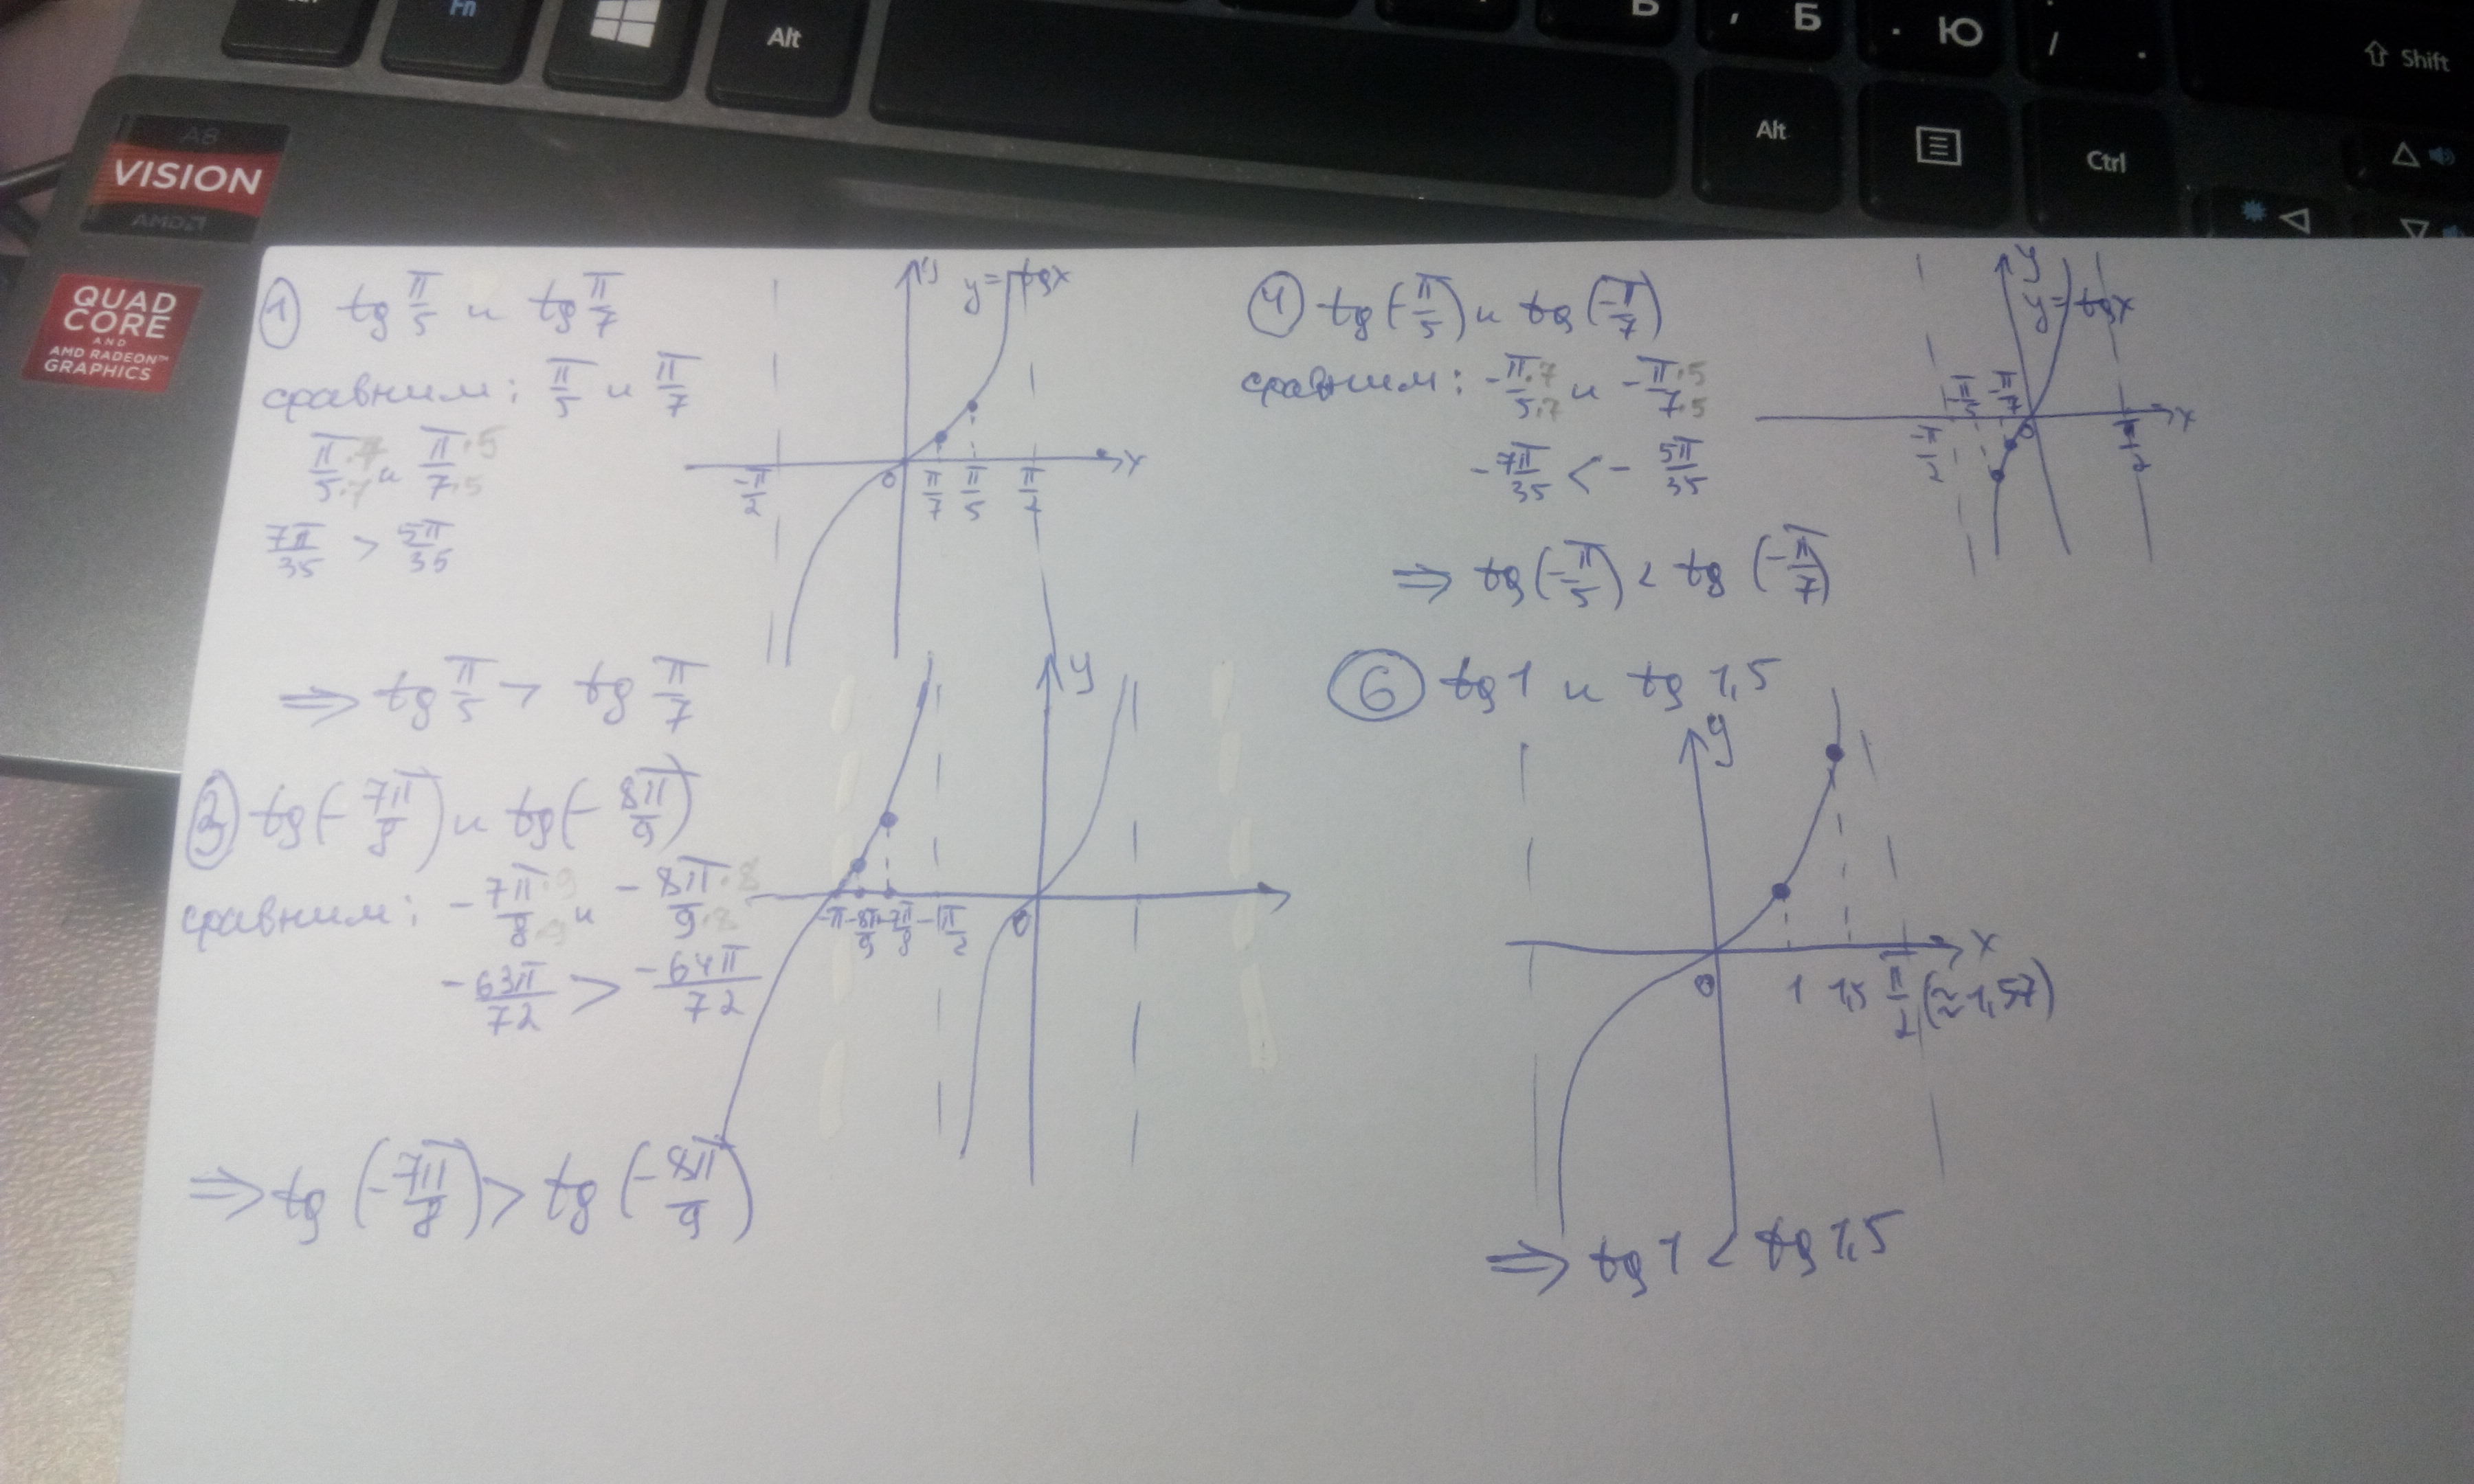 Fn
Alt
Б
Ю
/
Shift
Alt
Ctrl
A8
VISION
AMD
QUAD
CORE
AND
AMD RADEON™
GRAPHICS
① tg π/5 и tg π/7
сравним: π/5 и π/7
π·7/5·7 и π·5/7·5
7π/35 > 5π/35
⇒ tg π/5 > tg π/7
y
y=tgx
x
-π/2 0 π/7 π/5 π/2
③ tg(-7π/8) и tg(-8π/9)
сравним: -7π·9/8·9 и -8π·8/9·8
-63π/72 > -64π/72
⇒ tg(-7π/8) > tg(-8π/9)
y
-π -8π/9 -7π/8 -π/2 0
④ tg(-π/5) и tg(-π/7)
сравним: -π·7/5·7 и -π·5/7·5
-7π/35 < -5π/35
⇒ tg(-π/5) < tg(-π/7)
y
y=tgx
x
-π/2 -π/5 -π/7 0 π/2
⑥ tg 1 и tg 1,5
y
x
0 1 1,5 π/2 (≈1,57)
⇒ tg 1 < tg 1,5